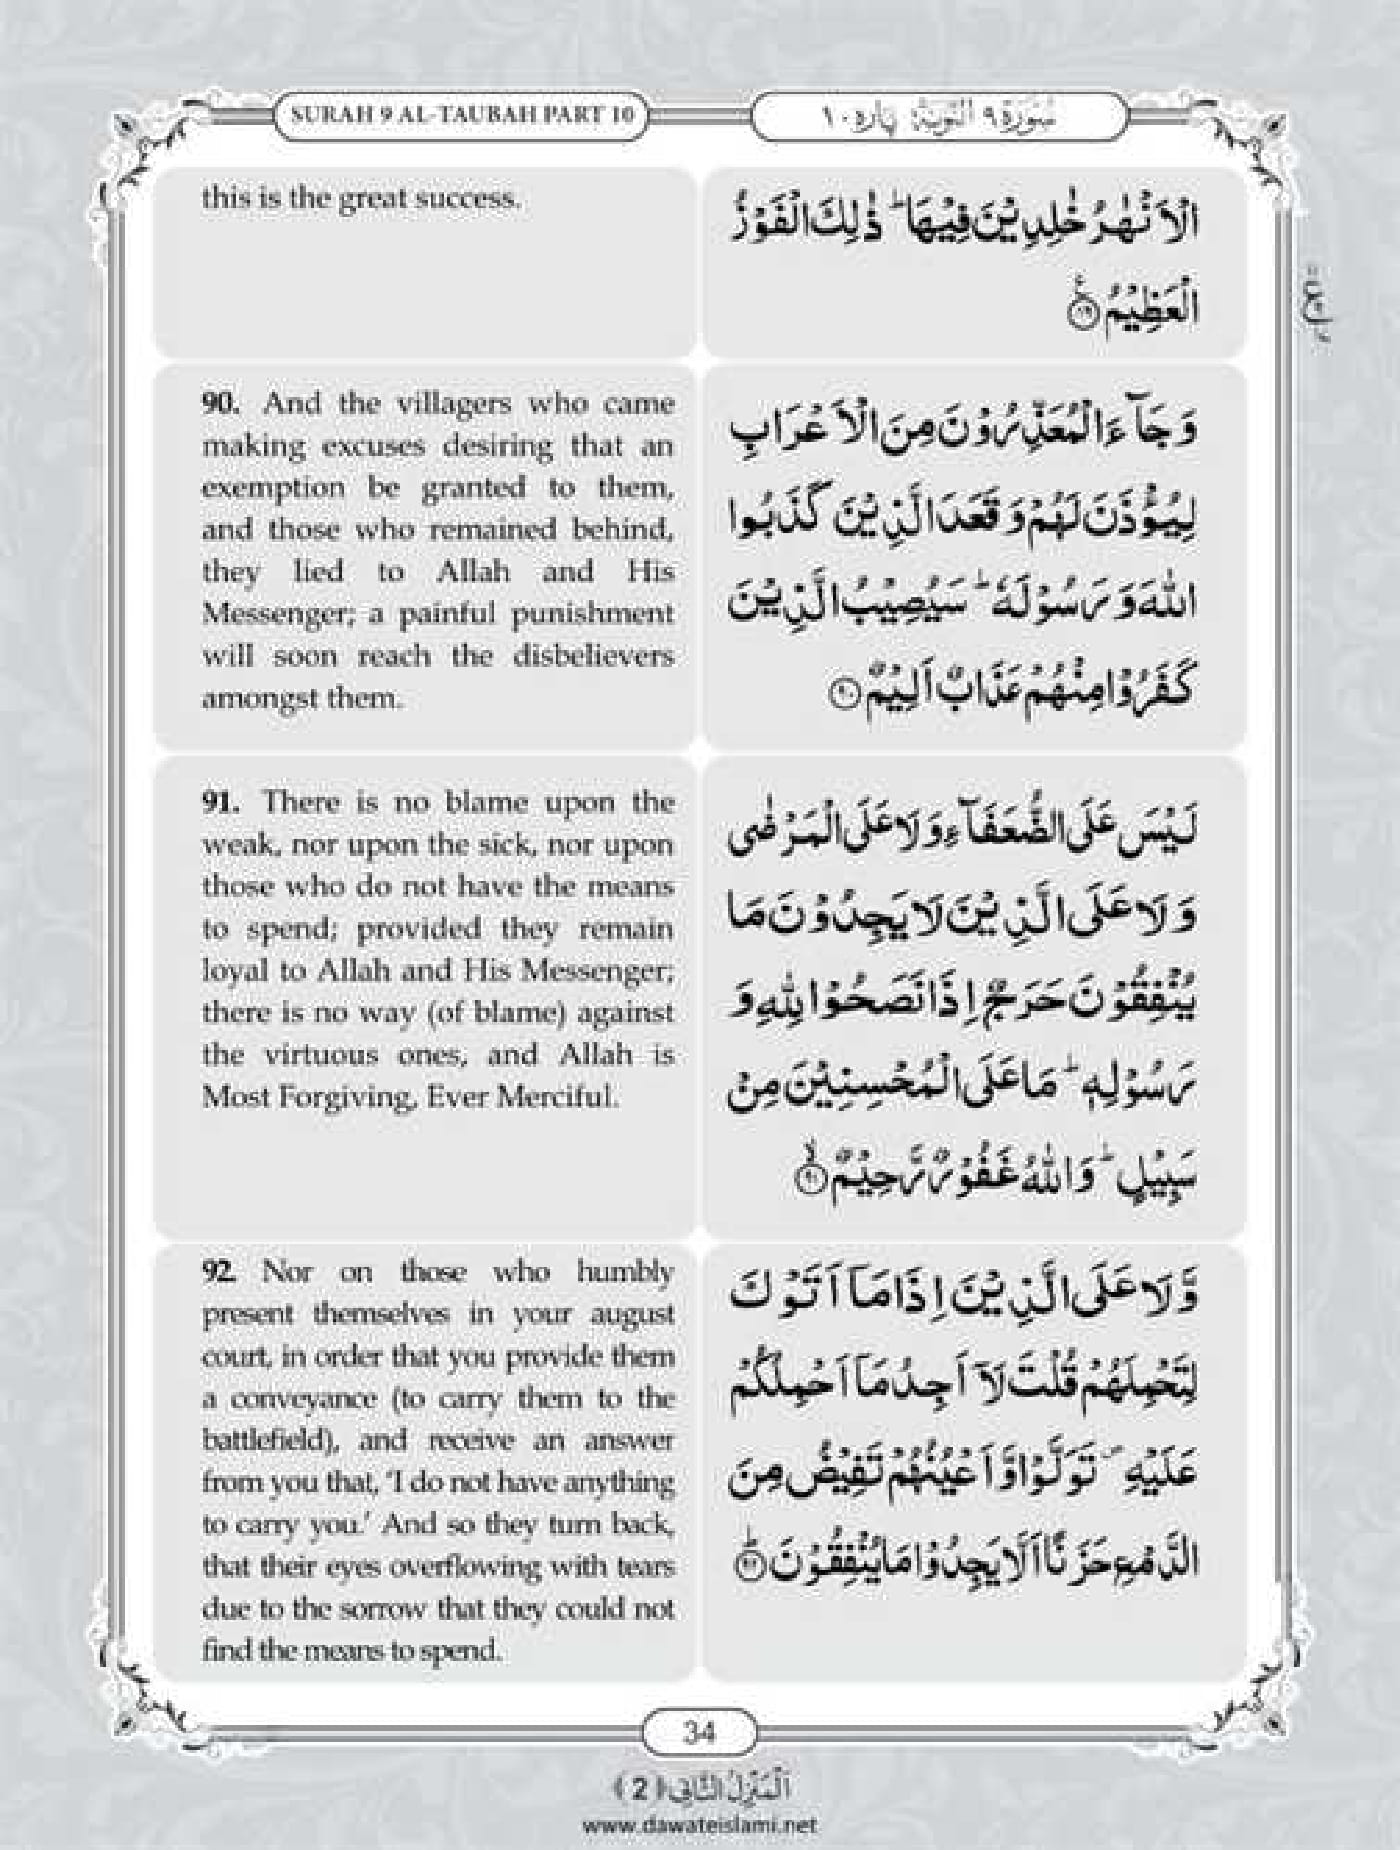 SURAH 9 AL-TAUBAH PART 10
سُوْرَة ٩ التَّوْبَة پاره ١٠
this is the great success.
الْاَنْهٰرُ خٰلِدِيْنَ فِيْهَا ؕ ذٰلِكَ الْفَوْزُ
الْعَظِيْمُ ﴿۸۹﴾
90. And the villagers who came
making excuses desiring that an
exemption be granted to them,
and those who remained behind,
they lied to Allah and His
Messenger; a painful punishment
will soon reach the disbelievers
amongst them.
وَ جَآءَ الْمُعَذِّرُوْنَ مِنَ الْاَعْرَابِ
لِيُؤْذَنَ لَهُمْ وَ قَعَدَ الَّذِيْنَ كَذَبُوا
اللّٰهَ وَ رَسُوْلَهٗ ؕ سَيُصِيْبُ الَّذِيْنَ
كَفَرُوْا مِنْهُمْ عَذَابٌ اَلِيْمٌ ﴿۹۰﴾
91. There is no blame upon the
weak, nor upon the sick, nor upon
those who do not have the means
to spend; provided they remain
loyal to Allah and His Messenger;
there is no way (of blame) against
the virtuous ones, and Allah is
Most Forgiving, Ever Merciful.
لَيْسَ عَلَى الضُّعَفَآءِ وَ لَا عَلَى الْمَرْضٰى
وَ لَا عَلَى الَّذِيْنَ لَا يَجِدُوْنَ مَا
يُنْفِقُوْنَ حَرَجٌ اِذَا نَصَحُوْا لِلّٰهِ وَ
رَسُوْلِهٖ ؕ مَا عَلَى الْمُحْسِنِيْنَ مِنْ
سَبِيْلٍ ؕ وَ اللّٰهُ غَفُوْرٌ رَّحِيْمٌ ﴿ۙ۹۱﴾
92. Nor on those who humbly
present themselves in your august
court, in order that you provide them
a conveyance (to carry them to the
battlefield), and receive an answer
from you that, 'I do not have anything
to carry you.' And so they turn back,
that their eyes overflowing with tears
due to the sorrow that they could not
find the means to spend.
وَّ لَا عَلَى الَّذِيْنَ اِذَا مَاۤ اَتَوْكَ
لِتَحْمِلَهُمْ قُلْتَ لَاۤ اَجِدُ مَاۤ اَحْمِلُكُمْ
عَلَيْهِ ۪ تَوَلَّوْا وَّ اَعْيُنُهُمْ تَفِيْضُ مِنَ
الدَّمْعِ حَزَنًا اَلَّا يَجِدُوْا مَا يُنْفِقُوْنَ ﴿ؕ۹۲﴾
34
اَلْمَنْزِلُ الثَّانِي ﴿2﴾
www.dawateislami.net